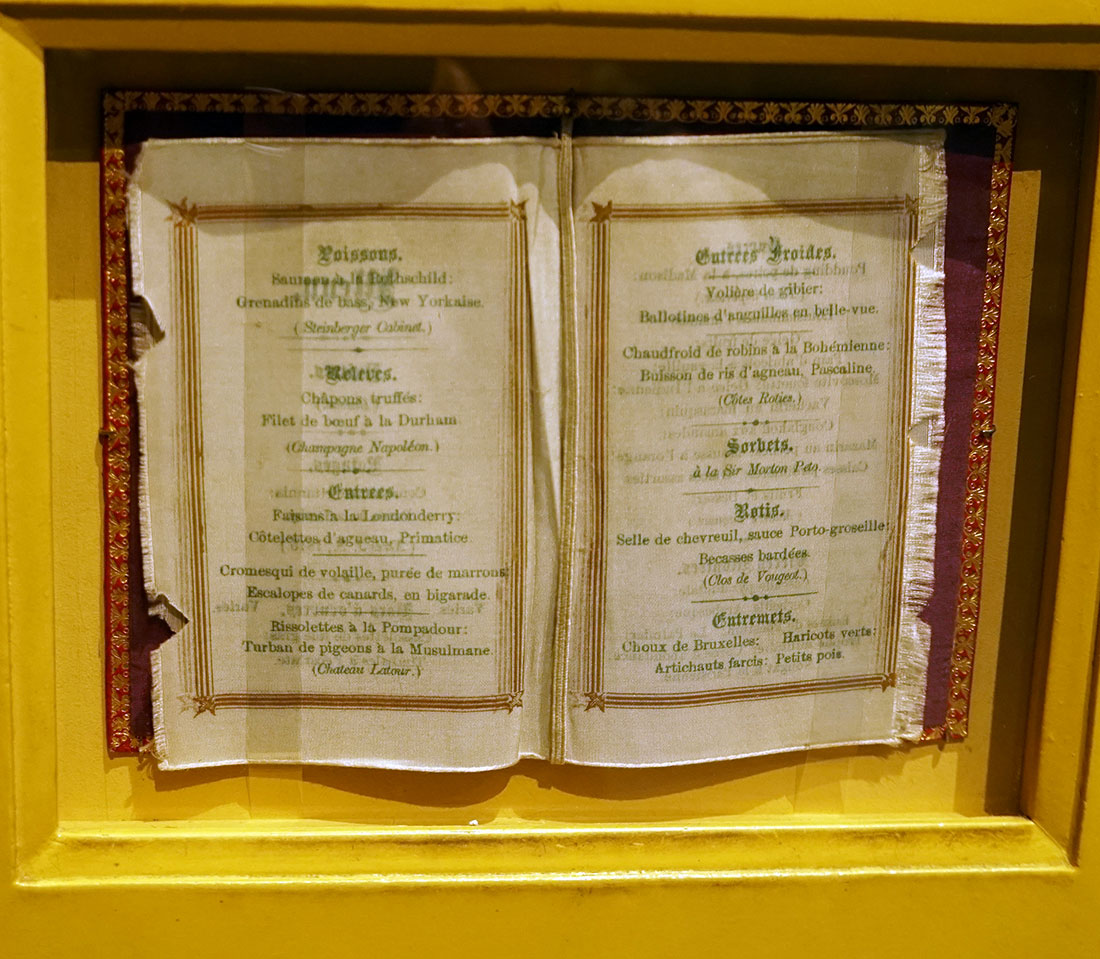 Poissons.
Saumon à la Rothschild:
Grenadins de bass, New Yorkaise.
(Steinberger Cabinet.)
Relevés.
Châpons truffés:
Filet de bœuf à la Durham
(Champagne Napoléon.)
Entrées.
Faisans à la Londonderry:
Côtelettes d'agneau, Primatice
Cromesqui de volaille, purée de marrons:
Escalopes de canards, en bigarade.
Rissolettes à la Pompadour:
Turban de pigeons à la Musulmane.
(Chateau Latour.)
Entrées Froides.
Volière de gibier:
Ballotines d'anguilles en belle-vue.
Chaudfroid de robins à la Bohémienne:
Buisson de ris d'agneau, Pascaline.
(Côtes Roties.)
Sorbets.
à la Sir Morton Peto.
Rotis.
Selle de chevreuil, sauce Porto-groseille:
Becasses bardées.
(Clos de Vougeot.)
Entremets.
Choux de Bruxelles: Haricots verts:
Artichauts farcis: Petits pois.